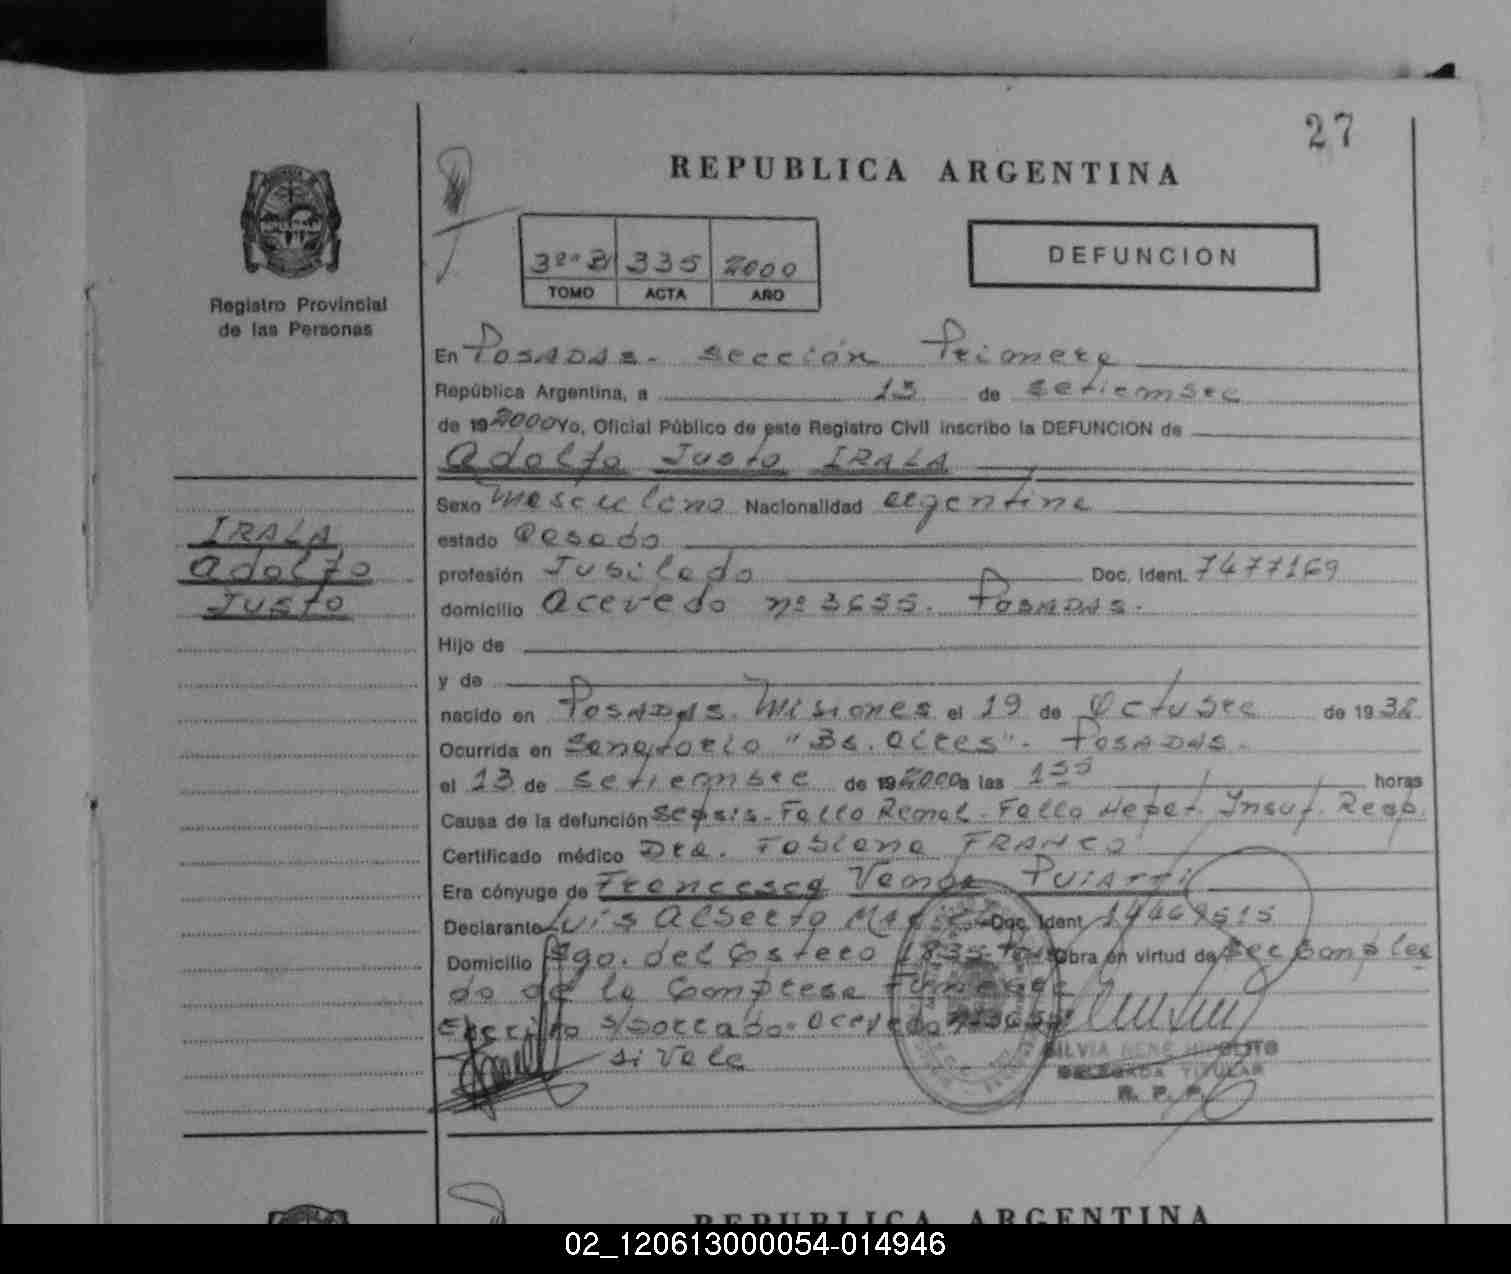 27
REPUBLICA ARGENTINA
DEFUNCION
3º "B" 335 2000
TOMO ACTA AÑO
Registro Provincial
de las Personas
IRALA,
Adolfo
Justo
En Posadas - sección Primera
República Argentina, a 13 de setiembre
de 19 2000 Yo, Oficial Público de este Registro Civil inscribo la DEFUNCION de
Adolfo Justo IRALA
Sexo masculino Nacionalidad argentina
estado casado
profesión Jubilado Doc. Ident. 7477169
domicilio Acevedo nº 3655. Posadas.
Hijo de
y de
nacido en Posadas. Misiones el 19 de Octubre de 19
Ocurrida en Sanatorio "Bs. Aires". Posadas.
el 13 de setiembre de 19 2000 a las horas
Causa de la defunción sepsis - Fallo Renal - Fallo Hepat. Insuf. Resp.
Certificado médico Dra. Fabiana FRANCO
Era cónyuge de Francesca Vanda PUIATTI
Declarante Luis Alberto Doc. Ident 14469515
Domicilio Fgo. del Ostero 1835 - Pos. Obra en virtud de ser emplea
do de la empresa
s/borrado: Acevedo nº 3655:
si Vale
SILVIA RENE HIPOLITO
DELEGADA TITULAR
R. P. P.
REPUBLICA ARGENTINA
02_120613000054-014946